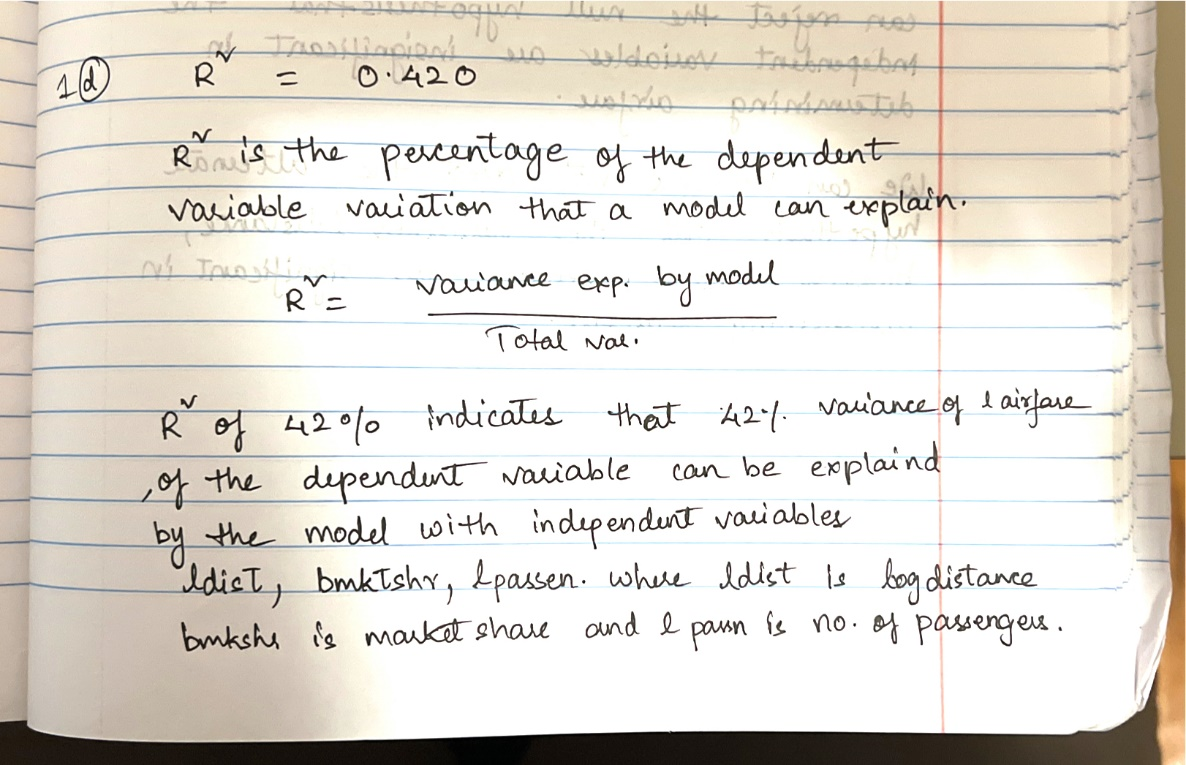 1ⓓ R² = 0.420
R² is the percentage of the dependent
variable variation that a model can explain.
R² = variance exp. by model
Total var.
R² of 42% indicates that 42% variance of lairfare
, of the dependent variable can be explaind
by the model with independent variables
ldist, bmktshr, lpassen. where ldist is log distance
bmkshr is market share and l passn is no. of passengers.